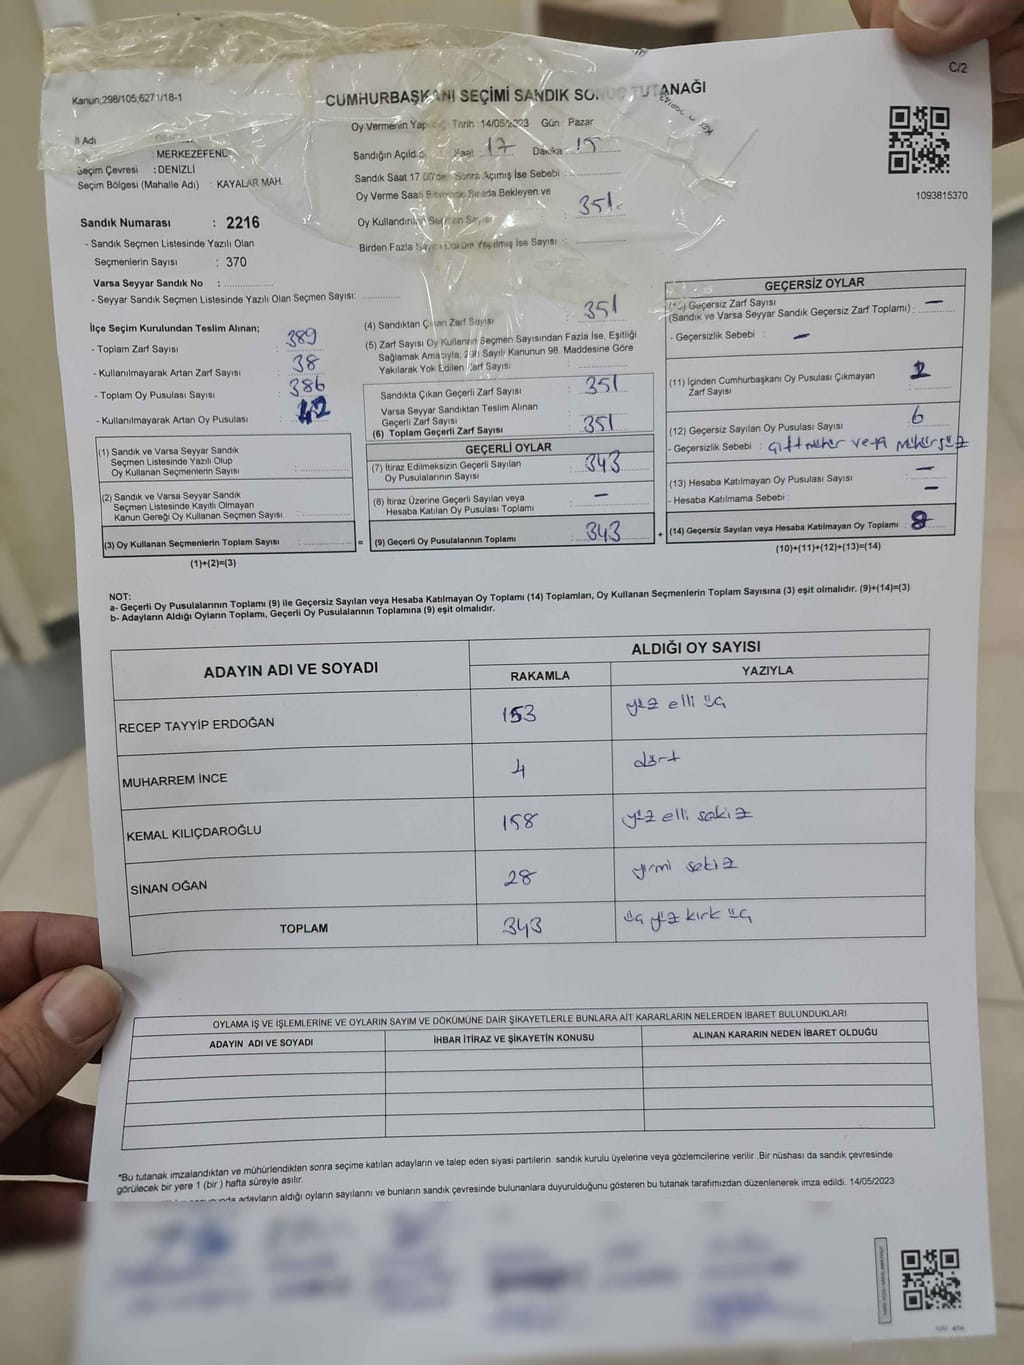 C/2
Kanun,298/105;6271/18-1
CUMHURBAŞKANI SEÇİMİ SANDIK SONUÇ TUTANAĞI
Oy Vermenin Yapıldığı Tarih :14/05/2023 Gün : Pazar
İl Adı
: MERKEZEFENDİ
Seçim Çevresi : DENİZLİ
Seçim Bölgesi (Mahalle Adı) : KAYALAR MAH.
Sandık Numarası : 2216
- Sandık Seçmen Listesinde Yazılı Olan
Seçmenlerin Sayısı : 370
Varsa Seyyar Sandık No :
- Seyyar Sandık Seçmen Listesinde Yazılı Olan Seçmen Sayısı:
Sandığın Açıldığı Saat : 17 Dakika : 15
Sandık Saat 17.00'den Sonra Açımış İse Sebebi :
Oy Verme Saati Bitiminde Sırada Bekleyen ve
Oy Kullandırılan Seçmen Sayısı : 351
Birden Fazla Sayım Döküm Yapılmış İse Sayısı :
1093815370
İlçe Seçim Kurulundan Teslim Alınan;
- Toplam Zarf Sayısı : 389
- Kullanılmayarak Artan Zarf Sayısı : 38
- Toplam Oy Pusulası Sayısı : 386
- Kullanılmayarak Artan Oy Pusulası : 42
(1) Sandık ve Varsa Seyyar Sandık
Seçmen Listesinde Yazılı Olup
Oy Kullanan Seçmenlerin Sayısı :
(2) Sandık ve Varsa Seyyar Sandık
Seçmen Listesinde Kayıtlı Olmayan
Kanun Gereği Oy Kullanan Seçmen Sayısı :
(3) Oy Kullanan Seçmenlerin Toplam Sayısı : =
(1)+(2)=(3)
(4) Sandıktan Çıkan Zarf Sayısı : 351
(5) Zarf Sayısı Oy Kullanan Seçmen Sayısından Fazla İse, Eşitliği
Sağlamak Amacıyla, 298 Sayılı Kanunun 98. Maddesine Göre
Yakılarak Yok Edilen Zarf Sayısı :
Sandıkta Çıkan Geçerli Zarf Sayısı : 351
Varsa Seyyar Sandıktan Teslim Alınan
Geçerli Zarf Sayısı :
(6) Toplam Geçerli Zarf Sayısı : 351
GEÇERLİ OYLAR
(7) İtiraz Edilmeksizin Geçerli Sayılan
Oy Pusulalarının Sayısı : 343
(8) İtiraz Üzerine Geçerli Sayılan veya
Hesaba Katılan Oy Pusulası Toplamı : –
(9) Geçerli Oy Pusulalarının Toplamı : 343 +
GEÇERSİZ OYLAR
(10) Geçersiz Zarf Sayısı
(Sandık ve Varsa Seyyar Sandık Geçersiz Zarf Toplamı) : –
- Geçersizlik Sebebi : –
(11) İçinden Cumhurbaşkanı Oy Pusulası Çıkmayan
Zarf Sayısı : 2
(12) Geçersiz Sayılan Oy Pusulası Sayısı : 6
- Geçersizlik Sebebi : çift mühür veya mühürsüz
(13) Hesaba Katılmayan Oy Pusulası Sayısı : –
- Hesaba Katılmama Sebebi : –
(14) Geçersiz Sayılan veya Hesaba Katılmayan Oy Toplamı : 8
(10)+(11)+(12)+(13)=(14)
NOT:
a- Geçerli Oy Pusulalarının Toplamı (9) ile Geçersiz Sayılan veya Hesaba Katılmayan Oy Toplamı (14) Toplamları, Oy Kullanan Seçmenlerin Toplam Sayısına (3) eşit olmalıdır. (9)+(14)=(3)
b- Adayların Aldığı Oyların Toplamı, Geçerli Oy Pusulalarının Toplamına (9) eşit olmalıdır.
ADAYIN ADI VE SOYADI ALDIĞI OY SAYISI
RAKAMLA YAZIYLA
RECEP TAYYİP ERDOĞAN 153 yüz elli üç
MUHARREM İNCE 4 dört
KEMAL KILIÇDAROĞLU 158 yüz elli sekiz
SİNAN OĞAN 28 yirmi sekiz
TOPLAM 343 üç yüz kırk üç
OYLAMA İŞ VE İŞLEMLERİNE VE OYLARIN SAYIM VE DÖKÜMÜNE DAİR ŞİKAYETLERLE BUNLARA AİT KARARLARIN NELERDEN İBARET BULUNDUKLARI
ADAYIN ADI VE SOYADI İHBAR İTİRAZ VE ŞİKAYETİN KONUSU ALINAN KARARIN NEDEN İBARET OLDUĞU
*Bu tutanak imzalandıktan ve mühürlendikten sonra seçime katılan adayların ve talep eden siyasi partilerin sandık kurulu üyelerine veya gözlemcilerine verilir .Bir nüshası da sandık çevresinde
görülecek bir yere 1 (bir ) hafta süreyle asılır.
adayların aldığı oyların sayılarını ve bunların sandık çevresinde bulunanlara duyurulduğunu gösteren bu tutanak tarafımızdan düzenlenerek imza edildi. 14/05/2023